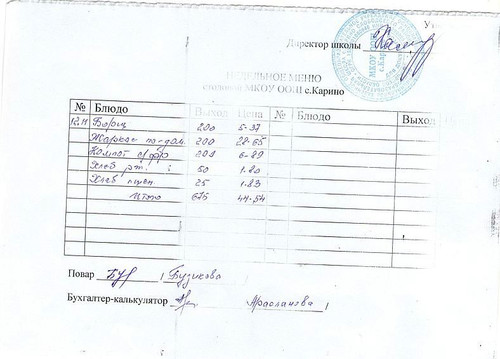 Ут
Директор школы
НЕДЕЛЬНОЕ МЕНЮ
столовой МКОУ ООШ с.Карино
№ Блюдо Выход Цена № Блюдо Выход
12.11 Борщ 200 5-37
Жаркое по-дом. 200 28-65
Компот с/фр 200 6-89
Хлеб рж. 50 1-80
Хлеб пшен. 25 1-83
Итого 675 44-54
Повар Бузикова
Бухгалтер-калькулятор